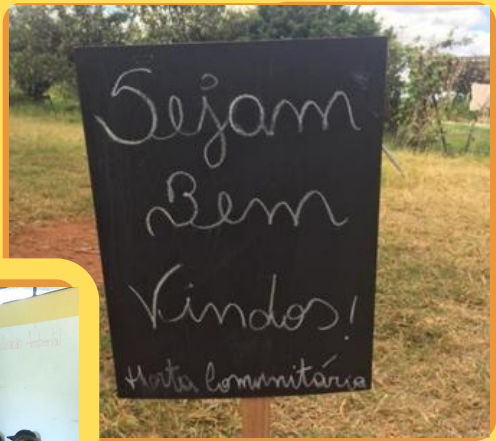 Sejam
Bem
Vindos!
Horta Comunitária